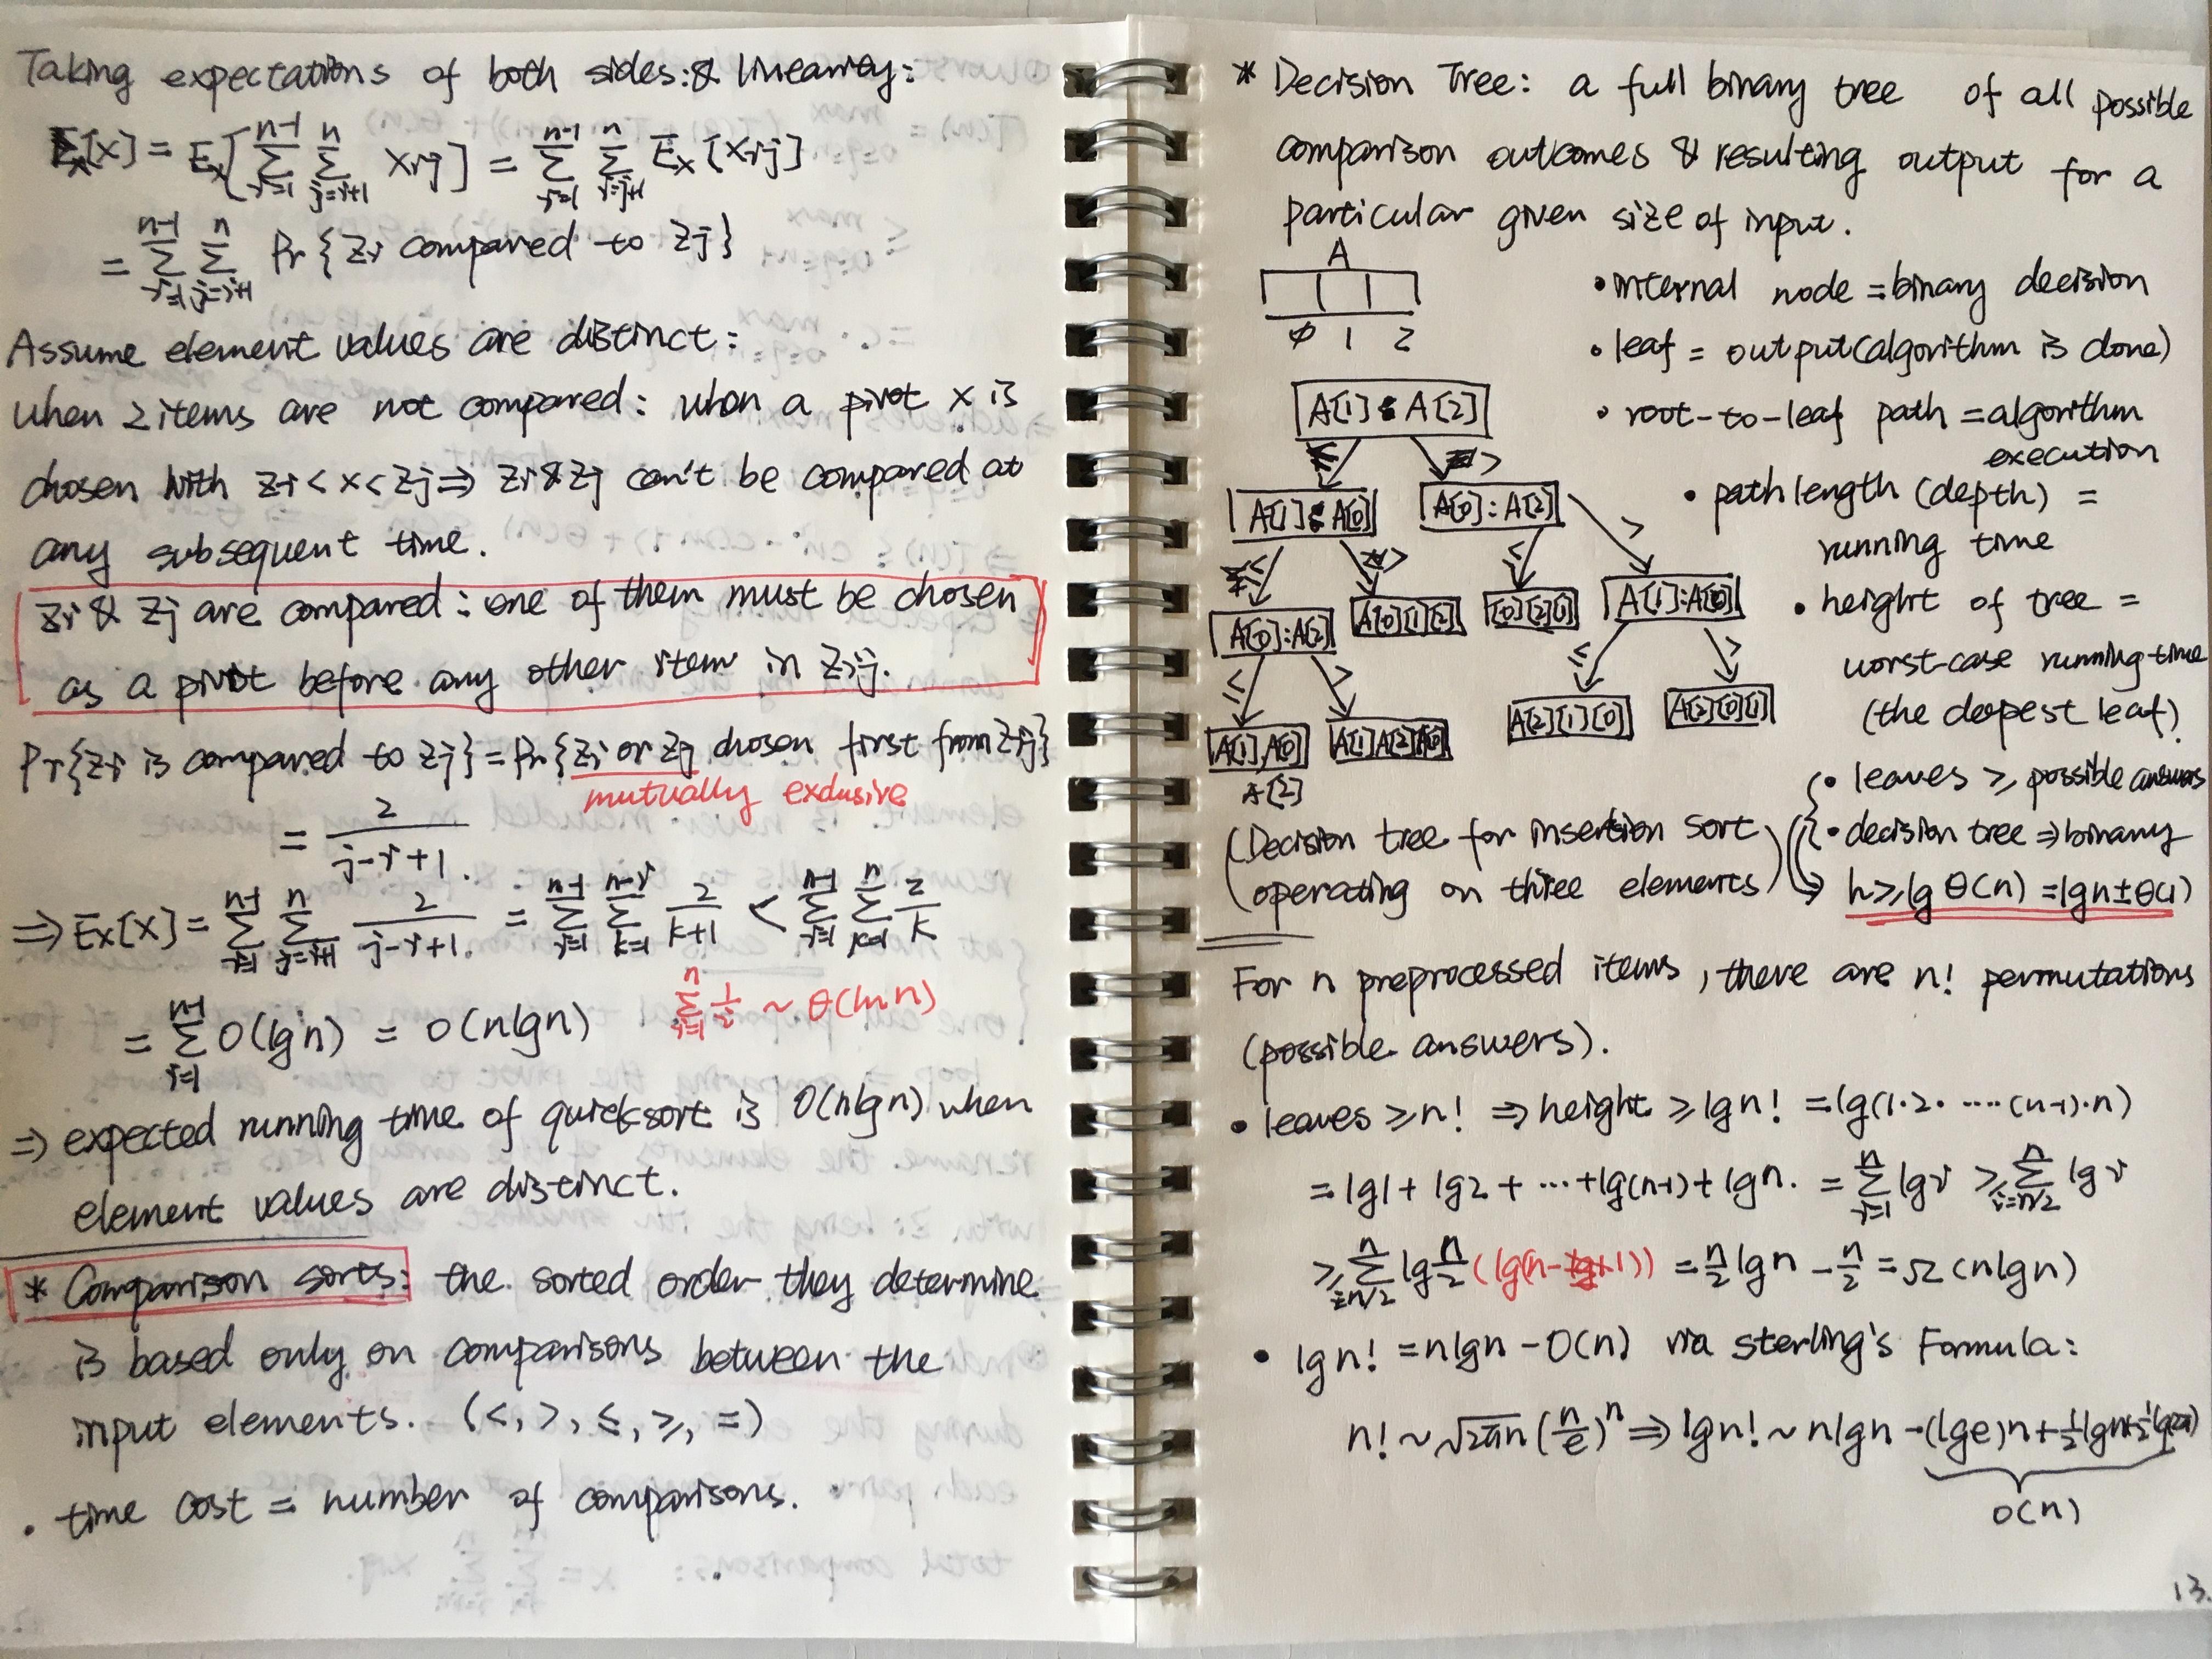 Taking expectations of both sides: & linearity:
Ex[X] = Ex[∑_{i=1}^{n-1} ∑_{j=i+1}^{n} Xij] = ∑_{i=1}^{n-1} ∑_{i=j+1}^{n} Ex[Xij]
= ∑_{i=1}^{n-1} ∑_{j=i+1}^{n} Pr{Zi compared to Zj}
Assume element values are distinct:
when 2 items are not compared: when a pivot x is
chosen with Zi < x < Zj ⇒ Zi & Zj can't be compared at
any subsequent time.
Zi & Zj are compared: one of them must be chosen
as a pivot before any other item in Zij.
Pr{Zi is compared to Zj} = Pr{Zi or Zj chosen first from Zij}
mutually exclusive
= 2/(j-i+1).
⇒ Ex[X] = ∑_{i=1}^{n-1} ∑_{j=i+1}^{n} 2/(j-i+1) = ∑_{i=1}^{n-1} ∑_{k=1}^{n-i} 2/(k+1) < ∑_{i=1}^{n-1} ∑_{k=1}^{n} 2/k
∑_{i=1}^{n} 1/i ~ θ(ln n)
= ∑_{i=1}^{n-1} O(lgn) = O(nlgn)
⇒ expected running time of quicksort is O(nlgn) when
element values are distinct.
* Comparison sorts: the sorted order they determine
is based only on comparisons between the
input elements. (<, >, ≤, ≥, =)
• time cost = number of comparisons.
* Decision Tree: a full binary tree of all possible
comparison outcomes & resulting output for a
particular given size of input.
A
0 1 2
• internal node = binary decision
• leaf = output (algorithm is done)
• root-to-leaf path = algorithm
execution
• path length (depth) =
running time
• height of tree =
worst-case running time
(the deepest leaf)
A[1] : A[2]
≤ >
A[1] : A[0] A[0] : A[2]
≤ > ≤ >
A[0]:A[2] A[0][1][2] [0][2][1] A[1]:A[0]
≤ > ≤ >
A[1],A[0] A[1]A[2]A[0] A[2][1][0] A[2][0][1]
A[2]
• leaves ≥ possible answers
• decision tree ⇒ binary
h ≥ lg θ(n) = lgn ± θ(1)
(Decision tree for insertion sort
operating on three elements)
For n preprocessed items, there are n! permutations
(possible answers).
• leaves ≥ n! ⇒ height ≥ lgn! = lg(1·2· ···· (n-1)·n)
= lg1 + lg2 + ··· + lg(n-1) + lgn. = ∑_{i=1}^{n} lgi ≥ ∑_{i=n/2}^{n} lgi
≥ ∑_{i=n/2}^{n} lg n/2 = n/2 lgn - n/2 = Ω(nlgn)
• lgn! = nlgn - O(n) via sterling's Formula:
n! ~ √2πn (n/e)^n ⇒ lgn! ~ nlgn - (lge)n + 1/2 lgn + 1/2 lg(2π)
O(n)
13.